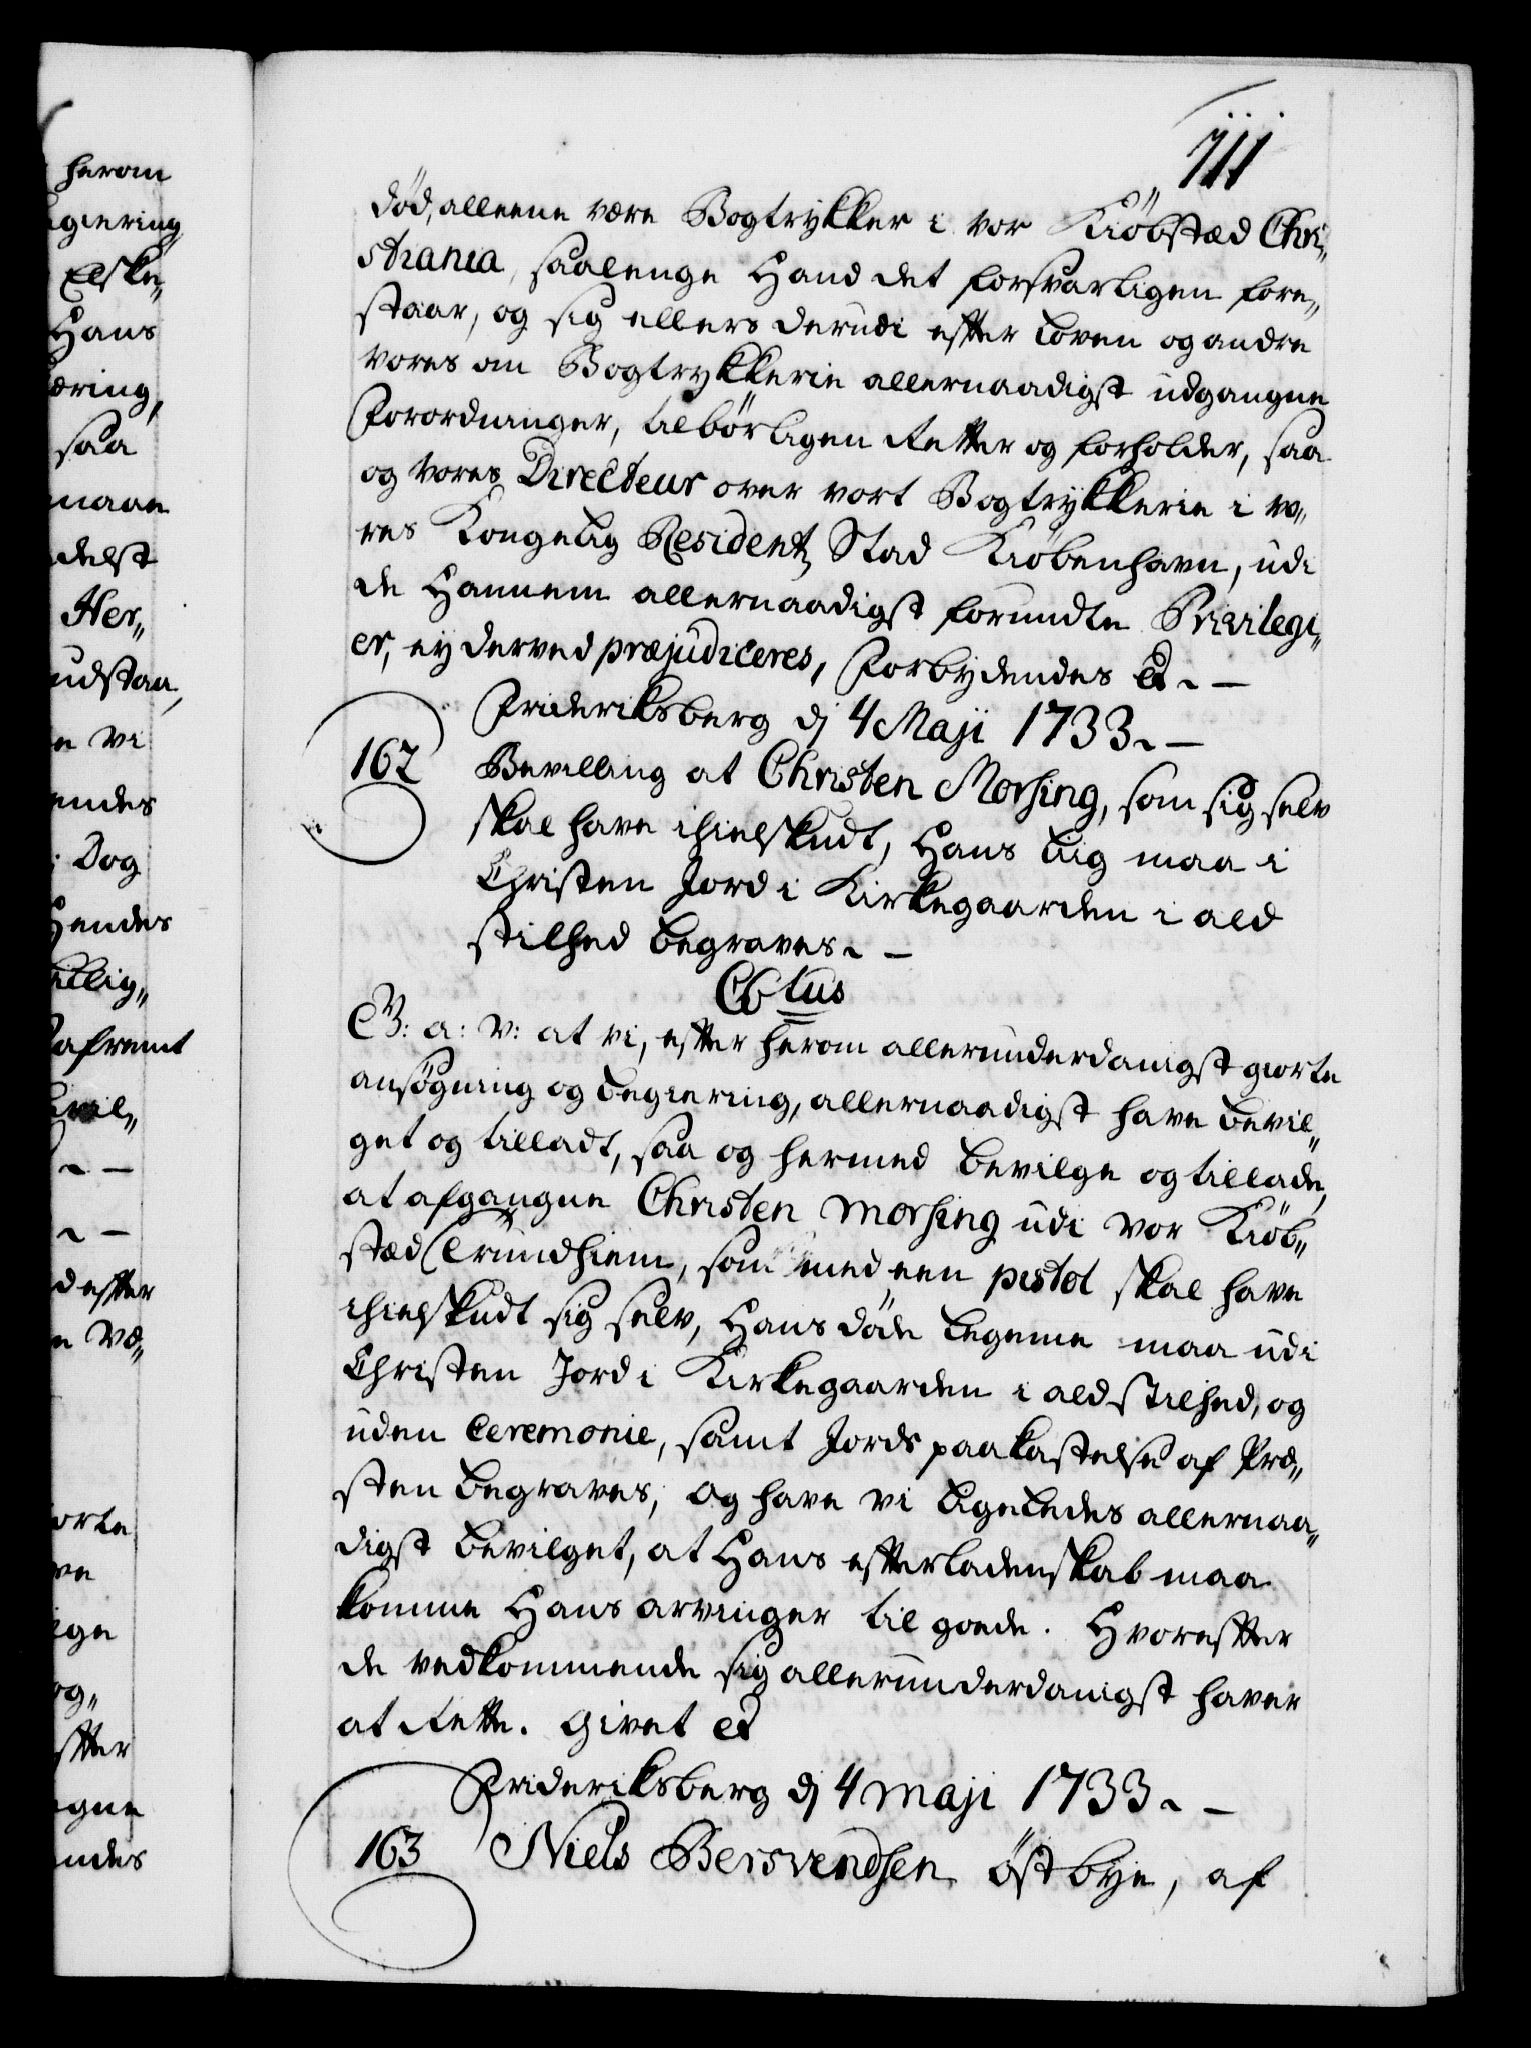 herom
giering
Elske„
Hans
æring,
saa
maae
delst
Her„
udstaa,
e vi
endes
Dog
hendes
illig„
dafremt
evil„
defter
e Væ„
iorte
ve
lge
og„
fter
gne
endes
111
död, alleene være Bogtrykker i vor Kiöbstæd Chri„
stiania, saalenge Hand det forsvarligen fore„
staar, og sig ellers derudi efter Loven og andre
vores om Bogtrykkerie allernaadigst udgangne
Forordninger, tilbörligen retter og forholder, saa
og vores Directeur over vort Bogtrykkerie i vo„
res Kongelig Residentz Stad Kiöbenhavn, udi
de Hannem allernaadigst forundte Privilegi„
er, ey derved præjudiceres, Forbydendes &.—
Friderichsberg dj 4 Maji 1733.—
162 Bevilling at Christen Morsing, som sig selv
skal have ihielskudt, Hans Liig maa i
Christen Jord i Kirkegaarden i ald
stilhed begraves.—
C6tus
G: a: V: at vi, efter herom allerunderdanigst giorte
ansögning og begiering, allernaadigst have bevil„
get og tilladt, saa og hermed bevilge og tillade,
at afgangne Christen Morsing udi vor Kiöb„
stæd Trundhiem, som med een pistol skal have
ihielskudt sig selv, Hans döde Legeme maa udi
Christen Jord i Kirkegaarden i ald stilhed, og
uden Ceremonie, samt Jords paakastelse af Præ„
sten begraves, og have vi ligeledes allernaa„
digst bevilget, at Hans efterladenskab maa
komme Hans arvinger til goede. Hvorefter
de vedkommende sig allerunderdanigst haver
at rette. Givet &
Friderichsberg dj 4 Maji 1733.—
163 Niels Bersvendsen Östbye, af